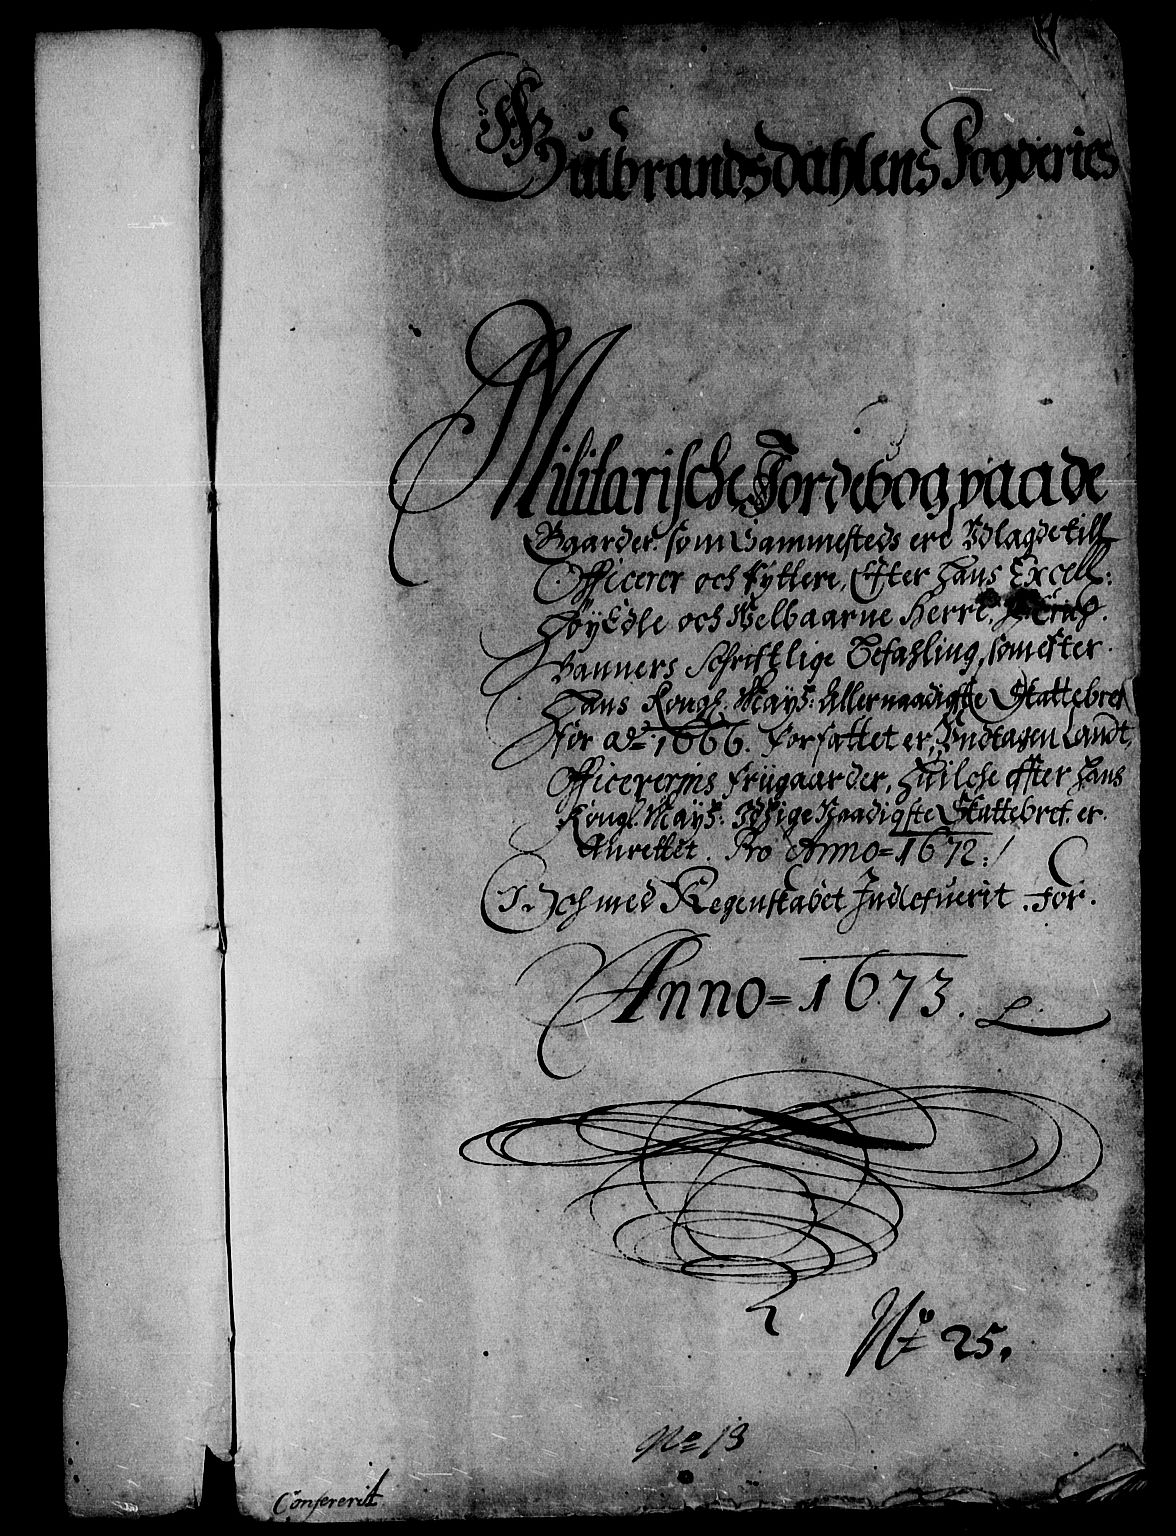 Gulbrandsdahlens Fogderies
Militarische Jordebog paa de
Gaarder som Sammesteds ere Udlagde till
Officerer och Ryttere, Efter Hans Excell:
Høy Edle och Welbaarne Herre, H: Erich
Banners Schriftlige Befahling, som efter
Hans Kongl: Mayts: Allernaadigste Skattebref
for Ao 1666. Forfattet er, Undtagen Landt
Officerernis friigaarder, Huilche effter Hans
Kongl: Mayts: Naadigste Skattebref er
Anrettet. Pro Anno = 1672:/
Och med Regenskabet Indlefuerit for
Anno = 1673.
No 25.
No 13
Confererit